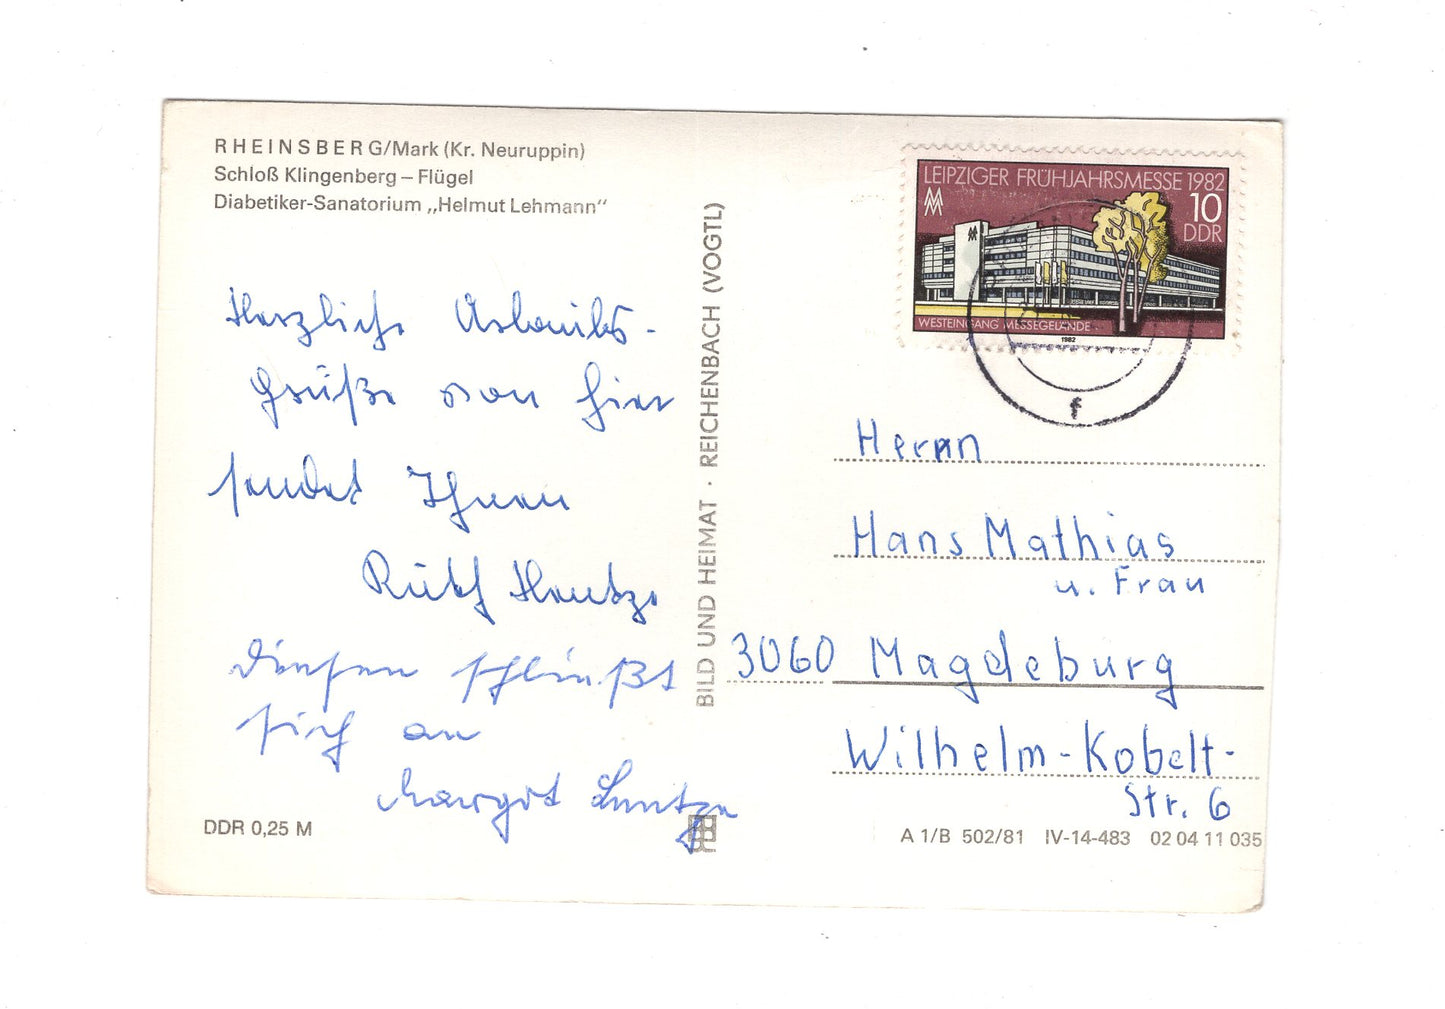 RHEINSBERG/Mark (Kr. Neuruppin)
Schloß Klingenberg – Flügel
Diabetiker-Sanatorium „Helmut Lehmann“
Herzliche Urlaubs-
grüße von hier
sendet Ihnen
Ruth
Diesen schließt
sich an
Margot
DDR 0,25 M
BILD UND HEIMAT · REICHENBACH (VOGTL)
LEIPZIGER FRÜHJAHRSMESSE 1982
10
DDR
WESTEINGANG MESSEGELÄNDE
1982
f
Herrn
Hans Mathias
u. Frau
3060 Magdeburg
Wilhelm-Kobelt-
Str. 6
A 1/B 502/81 IV-14-483 02 04 11 035